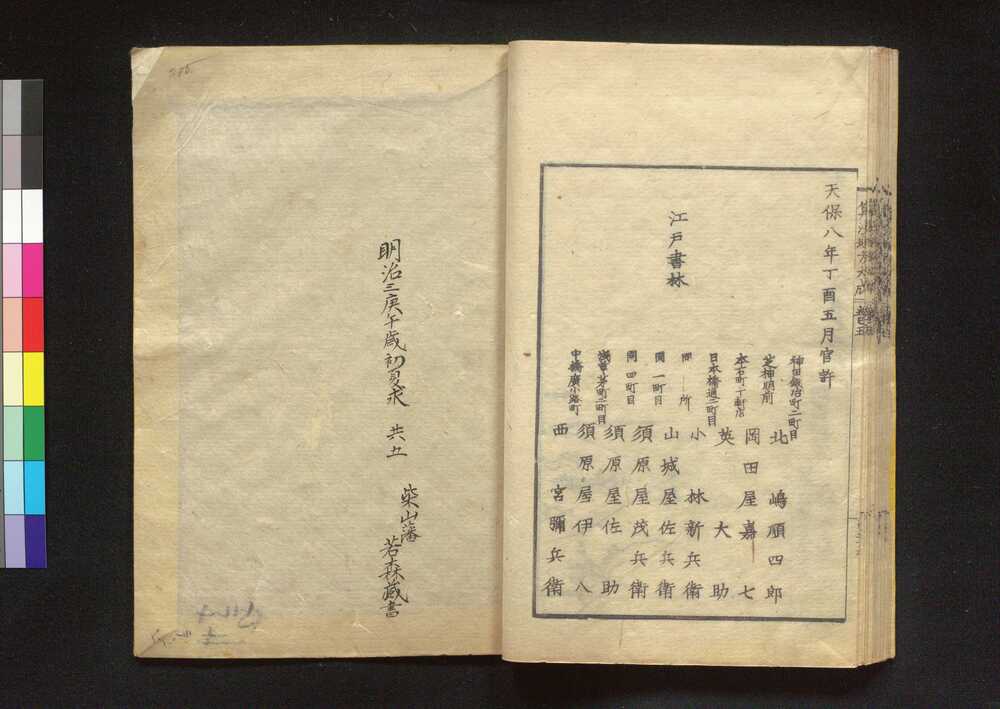 天保八年丁酉五月官許
江戸書林
神田鍛冶町二町目
北嶋順四郎
芝神明前
岡田屋嘉七
本石町十軒店
英大助
日本橋通二町目
小林新兵衛
同所
山城屋佐兵衛
同一町目
須原屋茂兵衛
同四町目
須原屋佐助
浅草茅町二町目
須原屋伊八
中橋廣小路町
西宮彌兵衛
明治三庚午歳初夏求 共五
柴山藩
若森蔵書